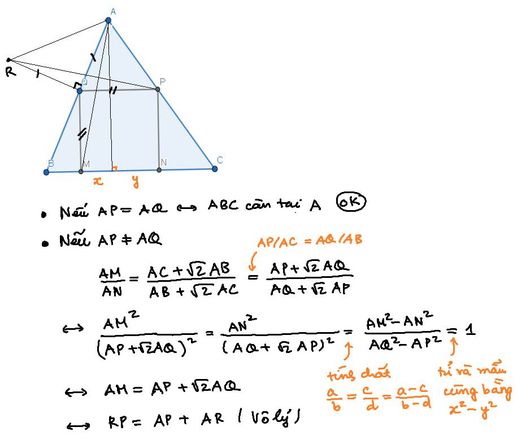 A
R
Q
P
B
M
N
C
x
y
• Nếu AP = AQ ↔ ABC cân tại A OK
• Nếu AP ≠ AQ
AP/AC = AQ/AB
AM/AN = (AC + √2 AB)/(AB + √2 AC) = (AP + √2 AQ)/(AQ + √2 AP)
↔ AM²/(AP + √2 AQ)² = AN²/(AQ + √2 AP)² = (AM² - AN²)/(AQ² - AP²) = 1
tính chất
a/b = c/d = (a-c)/(b-d)
tử và mẫu
cùng bằng
x² - y²
↔ AM = AP + √2 AQ
↔ RP = AP + AR (Vô lý)